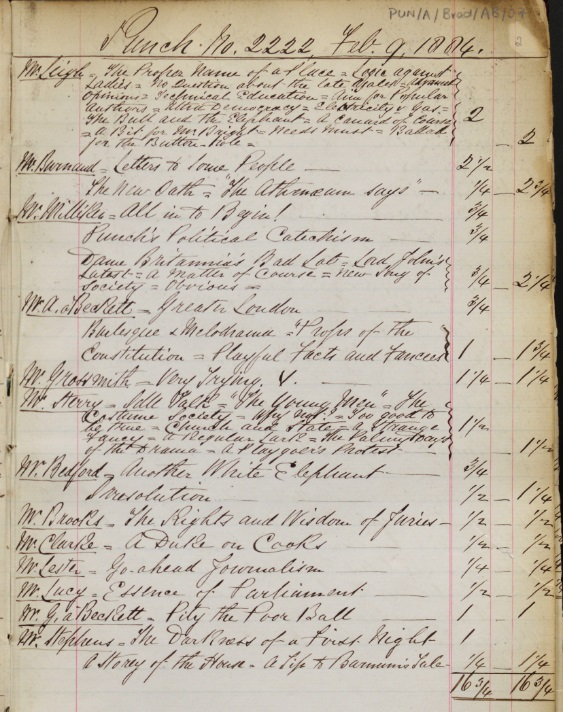 PUN/A/Brad/AB/07
2
Punch. No. 2222, Feb. 9. 1884.
Mr Leigh = The Proper Name of a Place = Logic against
Ladies = No Question about the late = Advanced
Opinions = Technical Education = Aim for Popular
Authors = Ultra Democracy = Electricity v Gas =
The Bull and the Elephant = A Canard of Course
= A Bit for Mr Bright = Needs Must = Ballad 2
for the Button-Hole = — 2
Mr Burnand = Letters to Some People — 2 1/2
The New Oath = "The Athenæum says" — 1/4 — 2 3/4
Mr Milliken = All in to Begin! 3/4
Punch's Political Catechism — 3/4
Dame Britannia's Bad Lot = Lord John's
Latest = A Matter of Course = New Song of 3/4 — 2 1/4
Society = Obvious =
Mr A. a'Beckett = Greater London 3/4
Burlesque & Melodrama = Props of the
Constitution = Playful Facts and Fancies 1 — 1 3/4
Mr Grossmith = Very Trying. V. — 1 1/4 — 1 1/4
Mr Sterry = Salt Talk = "The Young Men" = The
Costume Society = Why not? = Too good to
be true = Church and State = A Strange 1 1/2
Fancy = A Regular Lark = The Palmy Days
of the Drama = A Playgoer's Protest — 1 1/2
Mr Bedford = Another White Elephant — 3/4
Irresolution — 1/2 — 1 1/4
Mr Brooks = The Rights and Wisdom of Juries — 1/2 — 1/2
Mr Clarke = A Duke on Cooks — 1/2 — 1/2
Mr Lester = Go-ahead Journalism — 1/4 — 1/4
Mr Lucy = Essence of Parliament — 1/2 — 1/2
Mr G. a'Beckett = Pity the Poor Ball — 1 — 1
Mr Stephens = The Darkness of a First Night 1
A Storey of the House = A Tip to Barnum's Tale 1/4 — 1 1/4
16 3/4 16 3/4